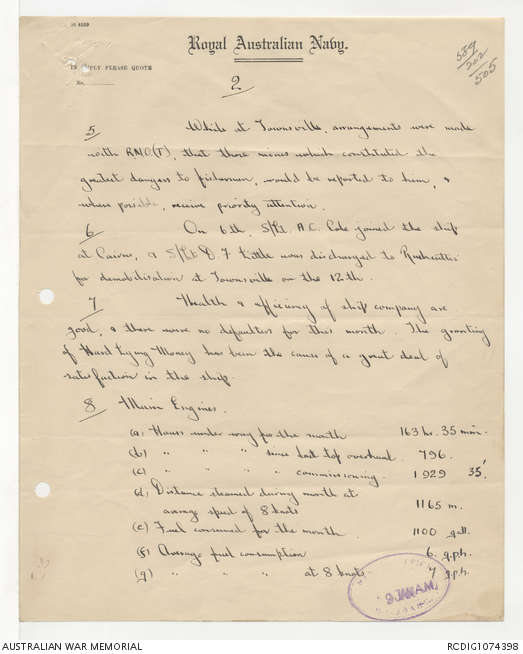 Royal Australian Navy.
IN REPLY PLEASE QUOTE
No.
589
202
505
2
5 While at Townsville, arrangements were made
with R.N.O.(T), that those mines which constituted the
greatest dangers to fishermen, would be reported to him, &
when possible, receive priority attention.
6 On 6th, S/Lt. A.C. Cole joined the ship
at Cairns, & S/Lt D. F. Little was discharged to
for demobilisation at Townsville on the 12th.
7 Health & efficiency of ship company are
good, & there were no defaulters for this month. The granting
of Hard Lying Money has been the cause of a great deal of
satisfaction in the ship.
8 Main Engines.
(a) Hours under way for the month 163 hr. 35 min.
(b) " " " since last top overhaul. 796.
(c) " " " " commissioning. 1929 35'
(d) Distance steamed during month at
average speed of 8 knots 1165 m.
(e) Fuel consumed for the month. 1100 gall.
(f) Average fuel consumption 6. g.p.h.
(g) " " " at 8 knots 7 g.p.h.
9 JAN A.M.
AUSTRALIAN WAR MEMORIAL
RCDIG1074398